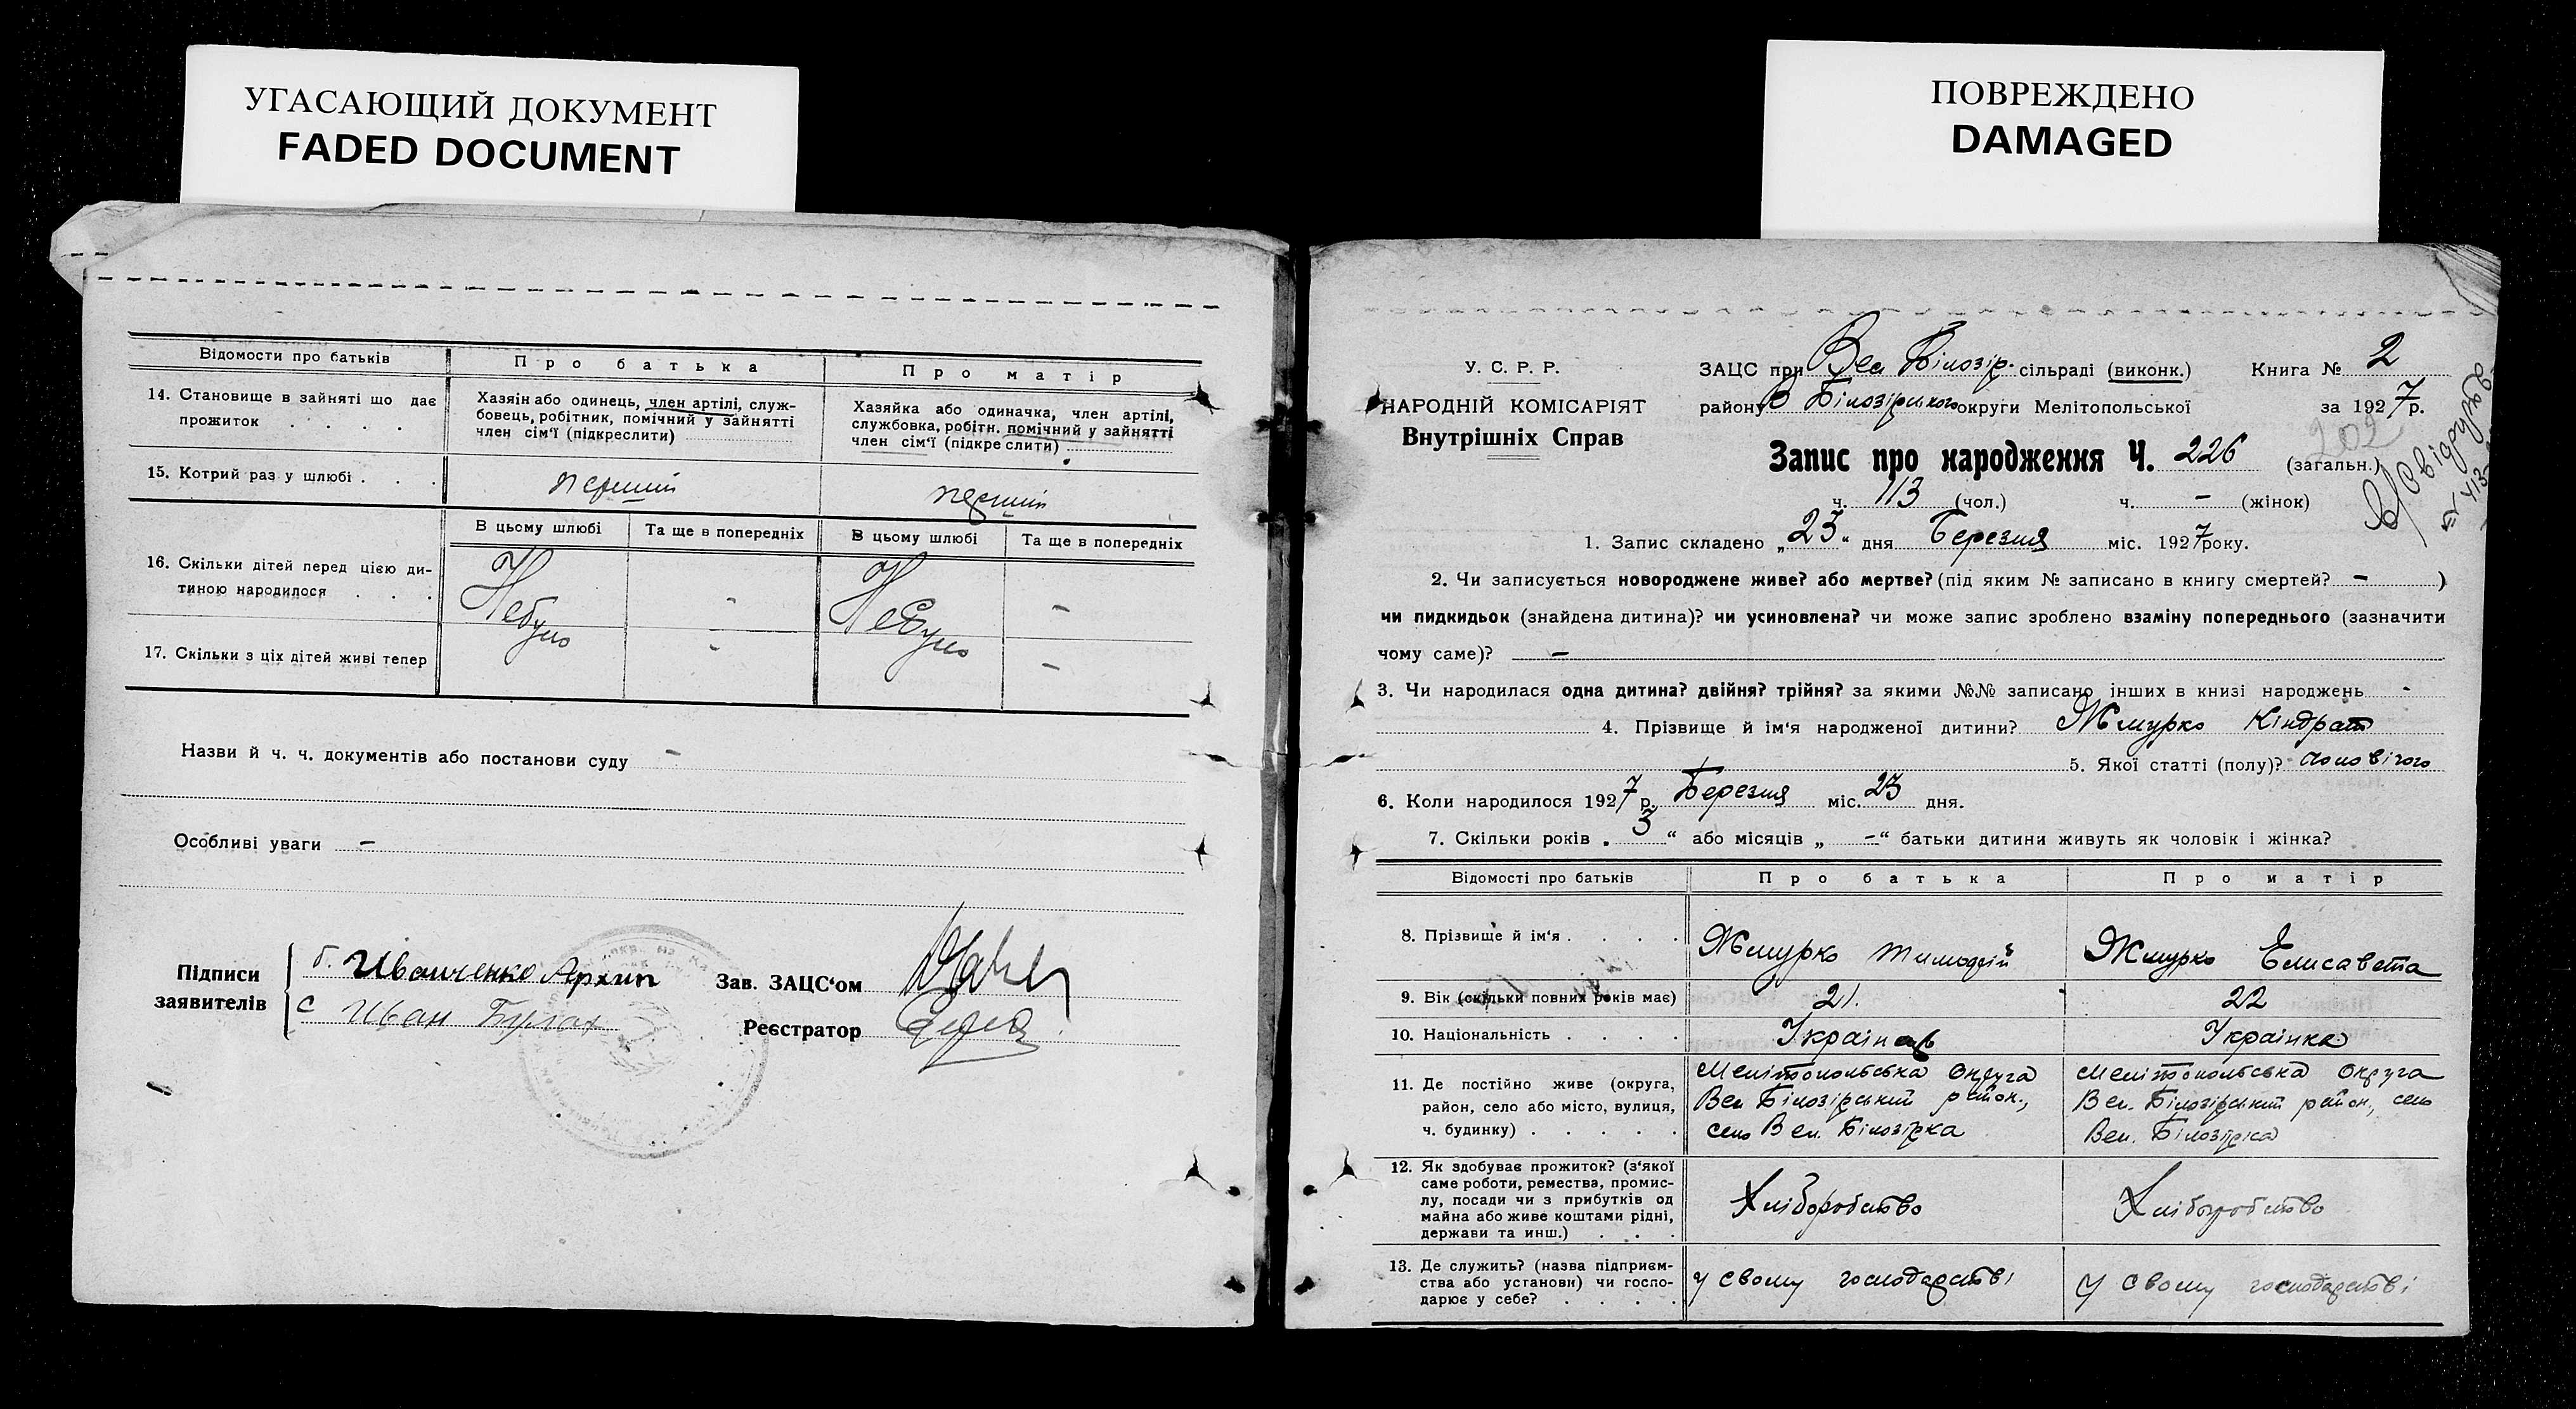 УГАСАЮЩИЙ ДОКУМЕНТ
FADED DOCUMENT
ПОВРЕЖДЕНО
DAMAGED
Відомости про батьків
Про батька
Про матір
14. Становище в зайняті що дає прожиток . . . .
Хазяін або одинець, член артілі, служ-
бовець, робітник, помічний у зайнятті
член сім'ї (підкреслити)
Хазяйка або одиначка, член артілі,
службовка, робітн. помічний у зайнятті
член сім'ї (підкреслити)
15. Котрий раз у шлюбі . . .
перший
перший
В цьому шлюбі
Та ще в попередніх
В цьому шлюбі
Та ще в попередніх
16. Скільки дітей перед цією ди-
тиною народилося . . .
Небуло
-
Небуло
-
17. Скільки з ціх дітей живі тепер
-
-
Назви й ч. ч. документів або постанови суду -
Особливі уваги -
Підписи
заявителів
б. Иванченко Архип
с Иван Булах
Зав. ЗАЦС'ом
Реєстратор
У. С. Р. Р.
НАРОДНІЙ КОМІСАРІЯТ
Внутрішніх Справ
ЗАЦС при Вел Білозір. сільраді (виконк.) Книга № 2
району В Білозірського округи Мелітопольської за 1927 р.
202
Запис про народження Ч. 226 (загальн.)
ч. 113 (чол.) ч. - (жінок)
1. Запис складено „23“ дня Березня міс. 1927 року.
2. Чи записується новороджене живе? або мертве? (під яким № записано в книгу смертей? - )
чи пидкидьок (знайдена дитина)? чи усиновлена? чи може запис зроблено взаміну попереднього (зазначити
чому саме)? -
3. Чи народилася одна дитина? двійня? трійня? за якими №№ записано інших в книзі народжень -
4. Прізвище й ім'я народженої дитини? Жмурко Кіндрат
5. Якої статті (полу)? чоловічого
6. Коли народилося 1927 р. Березня міс. 23 дня.
7. Скільки років „ 3 “ або місяців „ - “ батьки дитини живуть як чоловік і жінка?
Відомості про батьків
Про батька
Про матір
8. Прізвище й ім'я . . . .
Жмурко Тимофій
Жмурко Елисавета
9. Вік (скільки повних років має)
21.
22
10. Національність . . . .
Українець
Українка
11. Де постійно живе (округа,
район, село або місто, вулиця,
ч. будинку) . . . . .
Мелітопольська Округа
Вел Білозірський район.,
село Вел. Білозірка
Мелітопольська Округа
Вел. Білозірський район., село
Вел. Білозірка
12. Як здобуває прожиток? (з'якої
саме роботи, ремества, промис-
лу, посади чи з прибутків од
майна або живе коштами рідні,
держави та инш.) . . .
Хліборобство
Хліборобство
13. Де служить? (назва підприєм-
ства або установи) чи госпо-
дарює у себе? . . . .
у свому господарстві
у свому господарстві